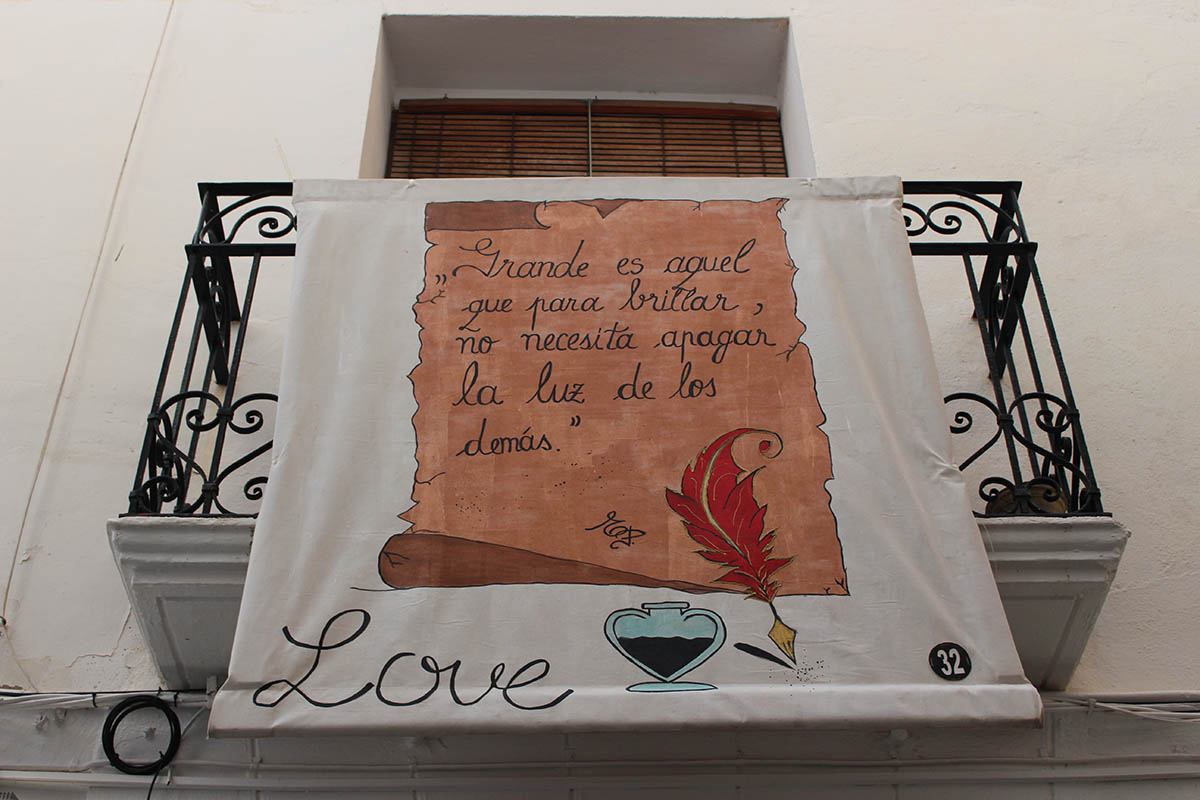 „Grande es aquel
que para brillar,
no necesita apagar
la luz de los
demás.”
Love
32